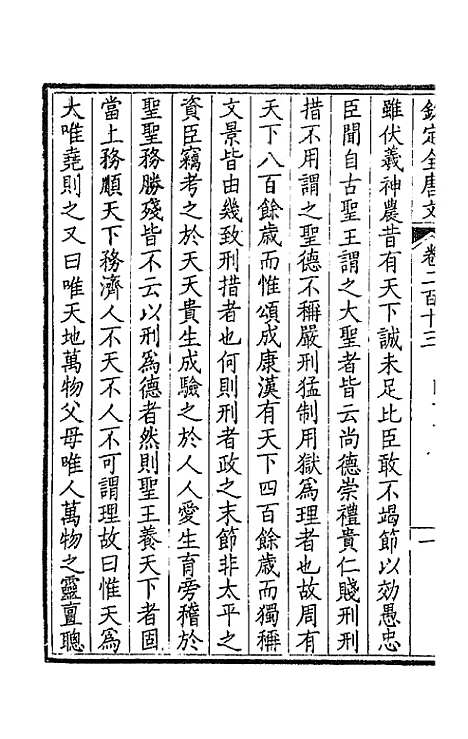 欽定全唐文 卷二百十三 一
雖伏羲神農昔有天下誠未足比臣敢不竭節以効愚忠
臣聞自古聖王謂之大聖者皆云尚德崇禮貴仁賤刑刑
措不用謂之聖德不稱嚴刑猛制用獄為理者也故周有
天下八百餘歲而惟頌成康漢有天下四百餘歲而獨稱
文景皆由幾致刑措者也何則刑者政之末節非太平之
資臣竊考之於天天貴生成驗之於人人愛生育旁稽於
聖聖務勝殘皆不云以刑為德者然則聖王養天下者固
當上務順天下務濟人不天不人不可謂理故曰惟天為
大唯堯則之又曰唯天地萬物父母唯人萬物之靈亶聰